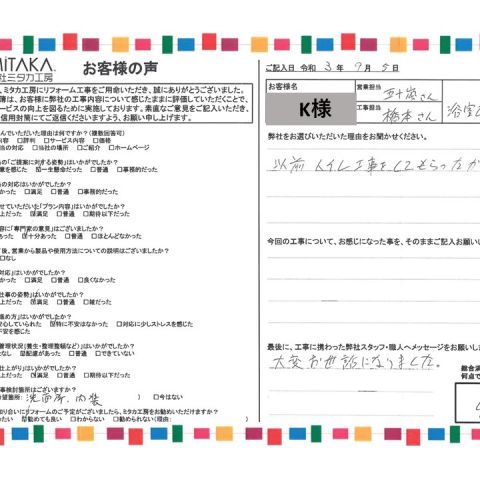 MiTAKA.
社ミタカ工房
お客様の声
、ミタカ工房にリフォーム工事をご用命いただき、誠にありがとうございました。
簿は、お客様に弊社の工事内容について感じたままに評価していただくことで、
ービスの向上を図るために実施しております。素直なご意見をご記入いただき、
信用封筒にてご返信くださいますよう、お願い申し上げます。
んでいただいた理由は何ですか?(複数回答可)
内容 □評判 □サービス内容 □価格
当の対応 □当社の場所 □ご紹介 □ホームページ
当の「ご提案に対する姿勢」はいかがでしたか?
意を感じた ☑一生懸命だった □普通 □事務的だった
当の対応はいかがでしたか?
かった □満足 □普通 □事務的だった
せていただいた「プラン内容」はいかがでしたか?
上だった ☑満足 □普通 □期待以下だった
容に「専門家の意見」はございましたか?
あった ☑十分あった □普通 □ほとんどなかった
後、営業から製品や使用方法についての説明はございましたか?
□なし
対応」はいかがでしたか?
かった □満足 □普通 □良くなかった
仕事の姿勢」はいかがでしたか?
上だった □満足 □普通 □雑だった
進め方」はいかがでしたか?
安心していられた ☑特に不安はなかった □対応に少しストレスを感じた
不安を感じた
管理状況(養生・整理整頓など)」はいかがでしたか?
たなし ☑配慮があった □普通 □できていない
仕上がり」はいかがでしたか?
上だった ☑満足 □普通 □期待以下だった
事検討箇所はございますか?
希望箇所:洗面所、内装 ) □今はない
知り合いにリフォームのご予定がございましたら、ミタカ工房をお勧めいただけますか?
たい ☑勧めても良い □わからない □勧められない(理由:
ご記入日 令和 3 年 9 月 5 日
お客様名
K様
営業担当
五十嵐さん
工事担当
橋本さん
浴室
弊社をお選びいただいた理由をお聞かせください。
以前 トイレ工事をしてもらったか
今回の工事について、お感じになった事を、そのままご記入お願い
最後に、工事に携わった弊社スタッフ・職人へメッセージをお願いしま
大変お世話になりました。
総合満
何点で